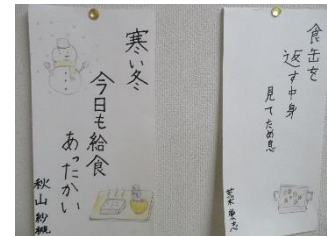 寒い冬
今日も給食
あったかい
秋山紗桃
食缶を
返す中身
見てため息